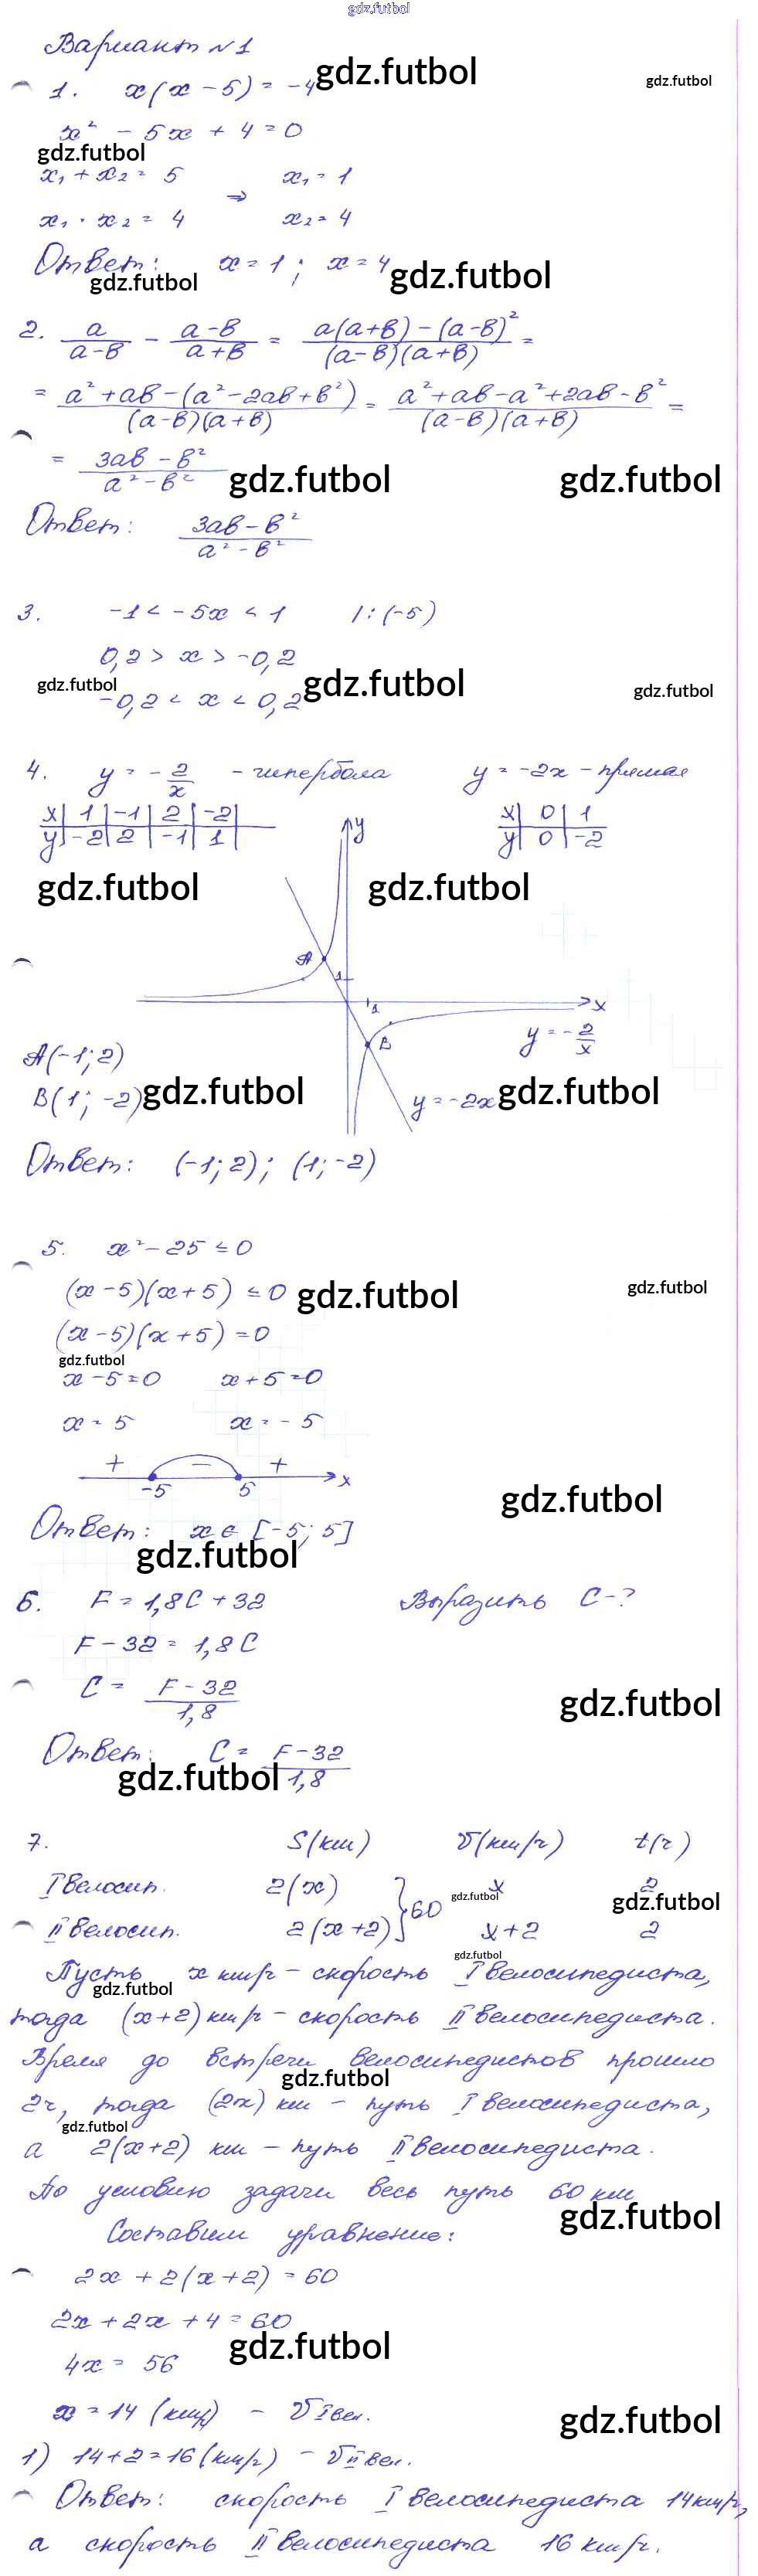 gdz.futbol
Вариант №1
1. x(x - 5) = -4 gdz.futbol gdz.futbol
x² - 5x + 4 = 0
gdz.futbol
x₁ + x₂ = 5 x₁ = 1
⇒
x₁ · x₂ = 4 x₂ = 4
Ответ: x = 1; x = 4 gdz.futbol
gdz.futbol
2. a/(a-в) - (a-в)/(a+в) = (a(a+в) - (a-в)²)/((a-в)(a+в)) =
= (a² + aв - (a² - 2aв + в²))/((a-в)(a+в)) = (a² + aв - a² + 2aв - в²)/((a-в)(a+в)) =
= (3aв - в²)/(a² - в²) gdz.futbol gdz.futbol
Ответ: (3aв - в²)/(a² - в²)
3. -1 < -5x < 1 |:(-5)
0,2 > x > -0,2
gdz.futbol gdz.futbol gdz.futbol
-0,2 < x < 0,2
4. y = -2/x - гипербола y = -2x - прямая
x | 1 | -1 | 2 | -2 | x | 0 | 1
y | -2 | 2 | -1 | 1 | y | 0 | -2
y
gdz.futbol gdz.futbol
A
1
1 x
B y = -2/x
A(-1; 2)
B(1; -2) gdz.futbol y = -2x gdz.futbol
Ответ: (-1; 2); (1; -2)
5. x² - 25 ≤ 0
(x - 5)(x + 5) ≤ 0 gdz.futbol gdz.futbol
(x - 5)(x + 5) = 0
gdz.futbol
x - 5 = 0 x + 5 = 0
x = 5 x = -5
+ - +
-5 5 x
gdz.futbol
Ответ: x ∈ [-5; 5]
gdz.futbol
6. F = 1,8C + 32 Выразить C-?
F - 32 = 1,8C
C = (F - 32)/1,8 gdz.futbol
Ответ: C = (F - 32)/1,8
gdz.futbol
7. S(км) V(км/ч) t(ч)
I велосип. 2(x) } 60 gdz.futbol x 2 gdz.futbol
II велосип. 2(x+2) x+2 2
gdz.futbol
Пусть x км/ч - скорость I велосипедиста,
gdz.futbol
тогда (x+2) км/ч - скорость II велосипедиста.
Время до встречи велосипедистов прошло
gdz.futbol
2ч, тогда (2x) км - путь I велосипедиста,
gdz.futbol
а 2(x+2) км - путь II велосипедиста.
По условию задачи весь путь 60 км
gdz.futbol
Составим уравнение:
2x + 2(x+2) = 60
2x + 2x + 4 = 60
gdz.futbol
4x = 56
x = 14 (км/ч) - V I вел.
gdz.futbol
1) 14 + 2 = 16 (км/ч) - V II вел.
Ответ: скорость I велосипедиста 14 км/ч,
а скорость II велосипедиста 16 км/ч.